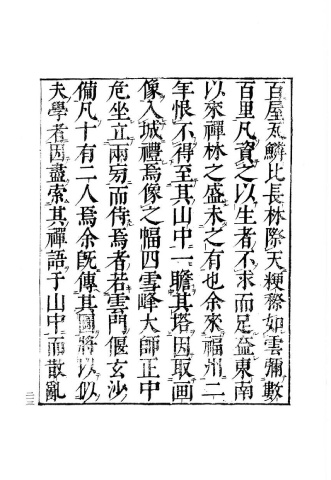 百屋瓦鱗比長林際天穎稼如雲彌數
百里凡資之以生者不求而足葢東南
以來禪林之盛未之有也余來福州二
年恨不得至其山中一瞻其塔因取画
像入城禮焉像之幅四雪峰大師正中
危坐立兩旁而侍焉者若雲門偃玄沙
備凡十有二人焉余旣傳其圖將以似
夫學者因盡索其禪語于山中而散亂